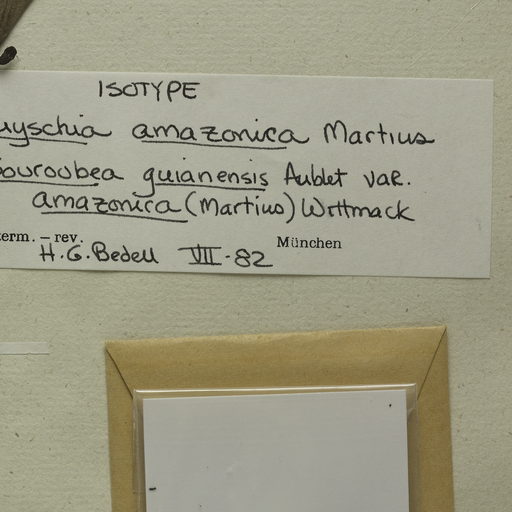 ISOTYPE
uyschia amazonica Martius
ouroubea guianensis Aublet var.
amazonica (Martius) Wittmack
term. – rev.
H.G. Bedell VII-82 München